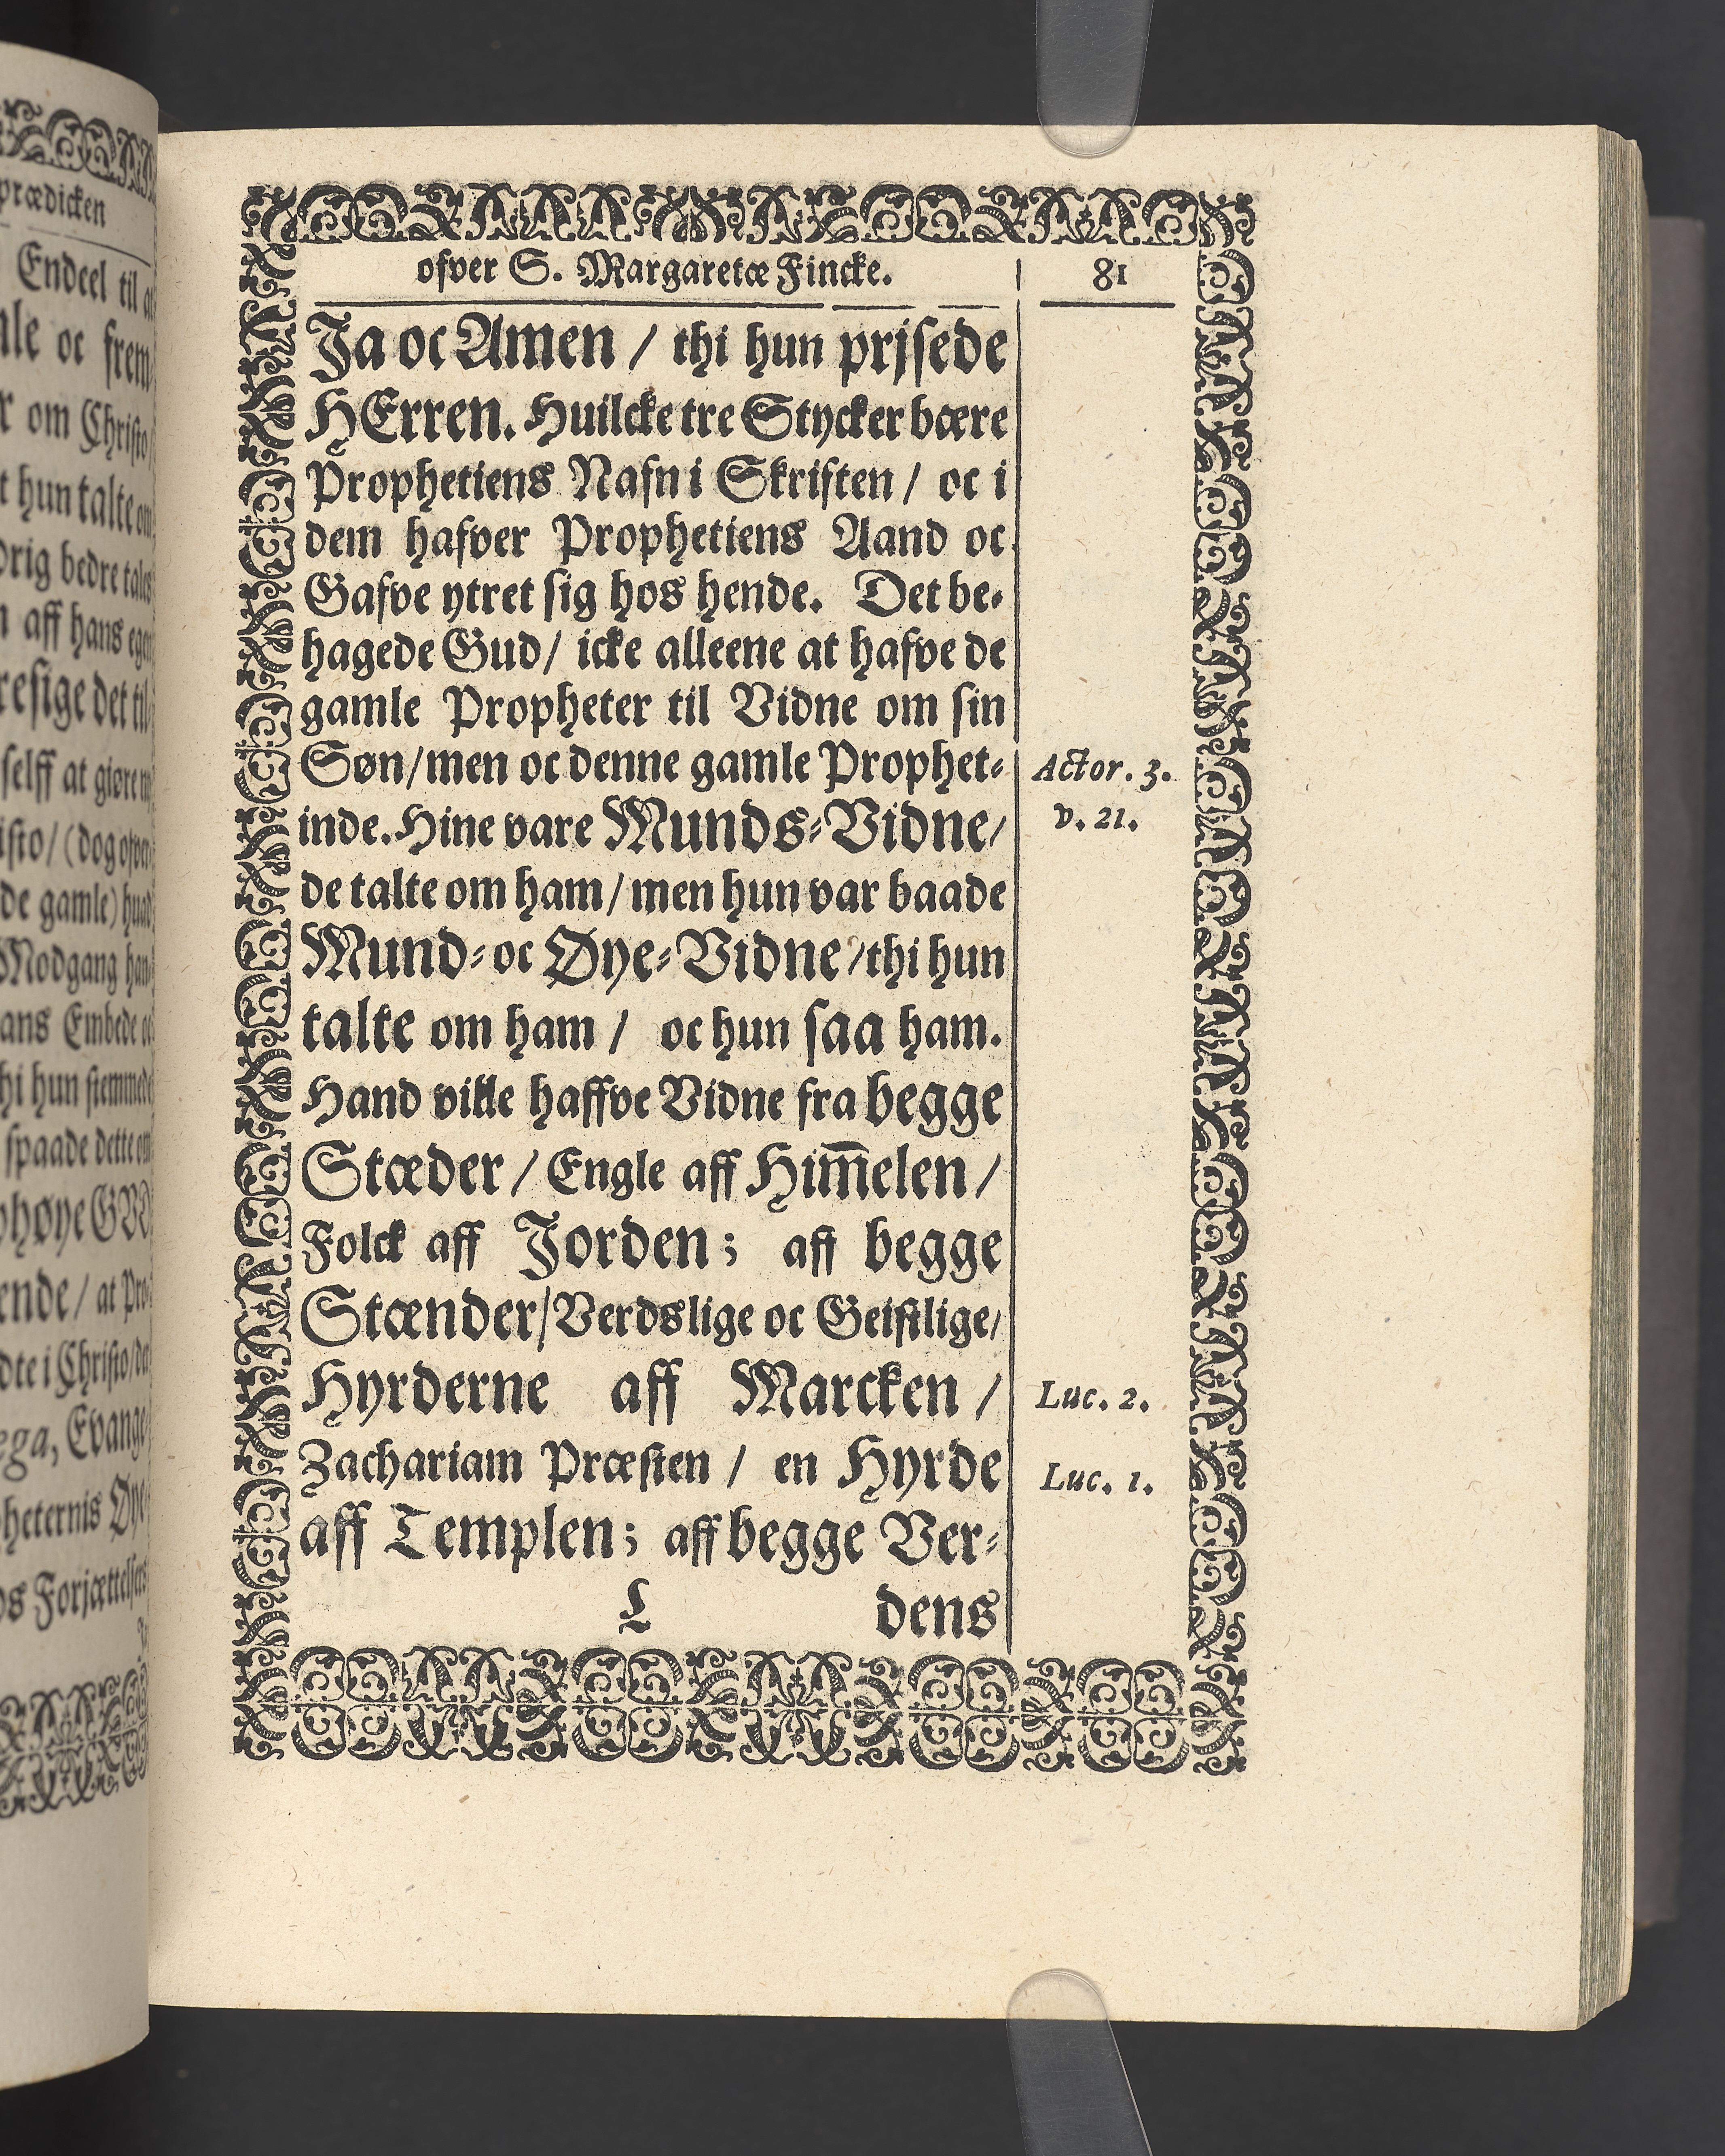 ofver S. Margaretæ Fincke. 81
Ja oc Amen / thi hun prjsede
HErren. Huilcke tre Stycker bære
Prophetiens Nafn i Skriften / oc i
dem hafver Prophetiens Aand oc
Gafve ytret sig hos hende. Det be-
hagede Gud / icke alleene at hafve de
gamle Propheter til Vidne om sin
Søn / men oc denne gamle Prophet-
Actor. 3.
inde. Hine vare Munds-Vidne /
v. 21.
de talte om ham / men hun var baade
Mund- oc Øye-Vidne / thi hun
talte om ham / oc hun saa ham.
Hand ville haffve Vidne fra begge
Stæder / Engle aff Him̅elen /
Folck aff Jorden; aff begge
Stænder / Verdslige oc Geistlige /
Hyrderne aff Marcken /
Luc. 2.
Zachariam Præsten / en Hyrde
Luc. 1.
aff Templen; aff begge Ver-
L dens
prædicken
Endeel til
oc frem
om Christo
hun talte om
bedre tales
aff hans egen
det til
selff at giøre
de gamle)
Modgang
Embede
hi hun stemmede
spaade dette om
ende / at Pro-
i Christo / de
Evange-
Øye
Forjættelser